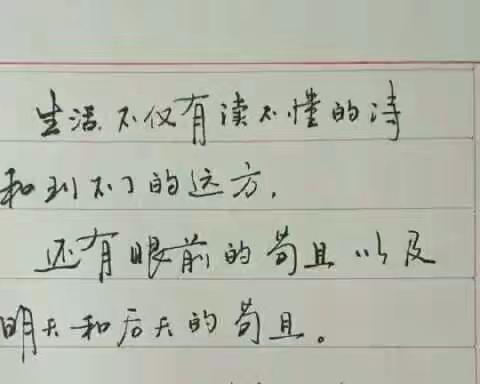 生活不仅有读不懂的诗
和到不了的远方，
还有眼前的苟且以及
明天和后天的苟且。